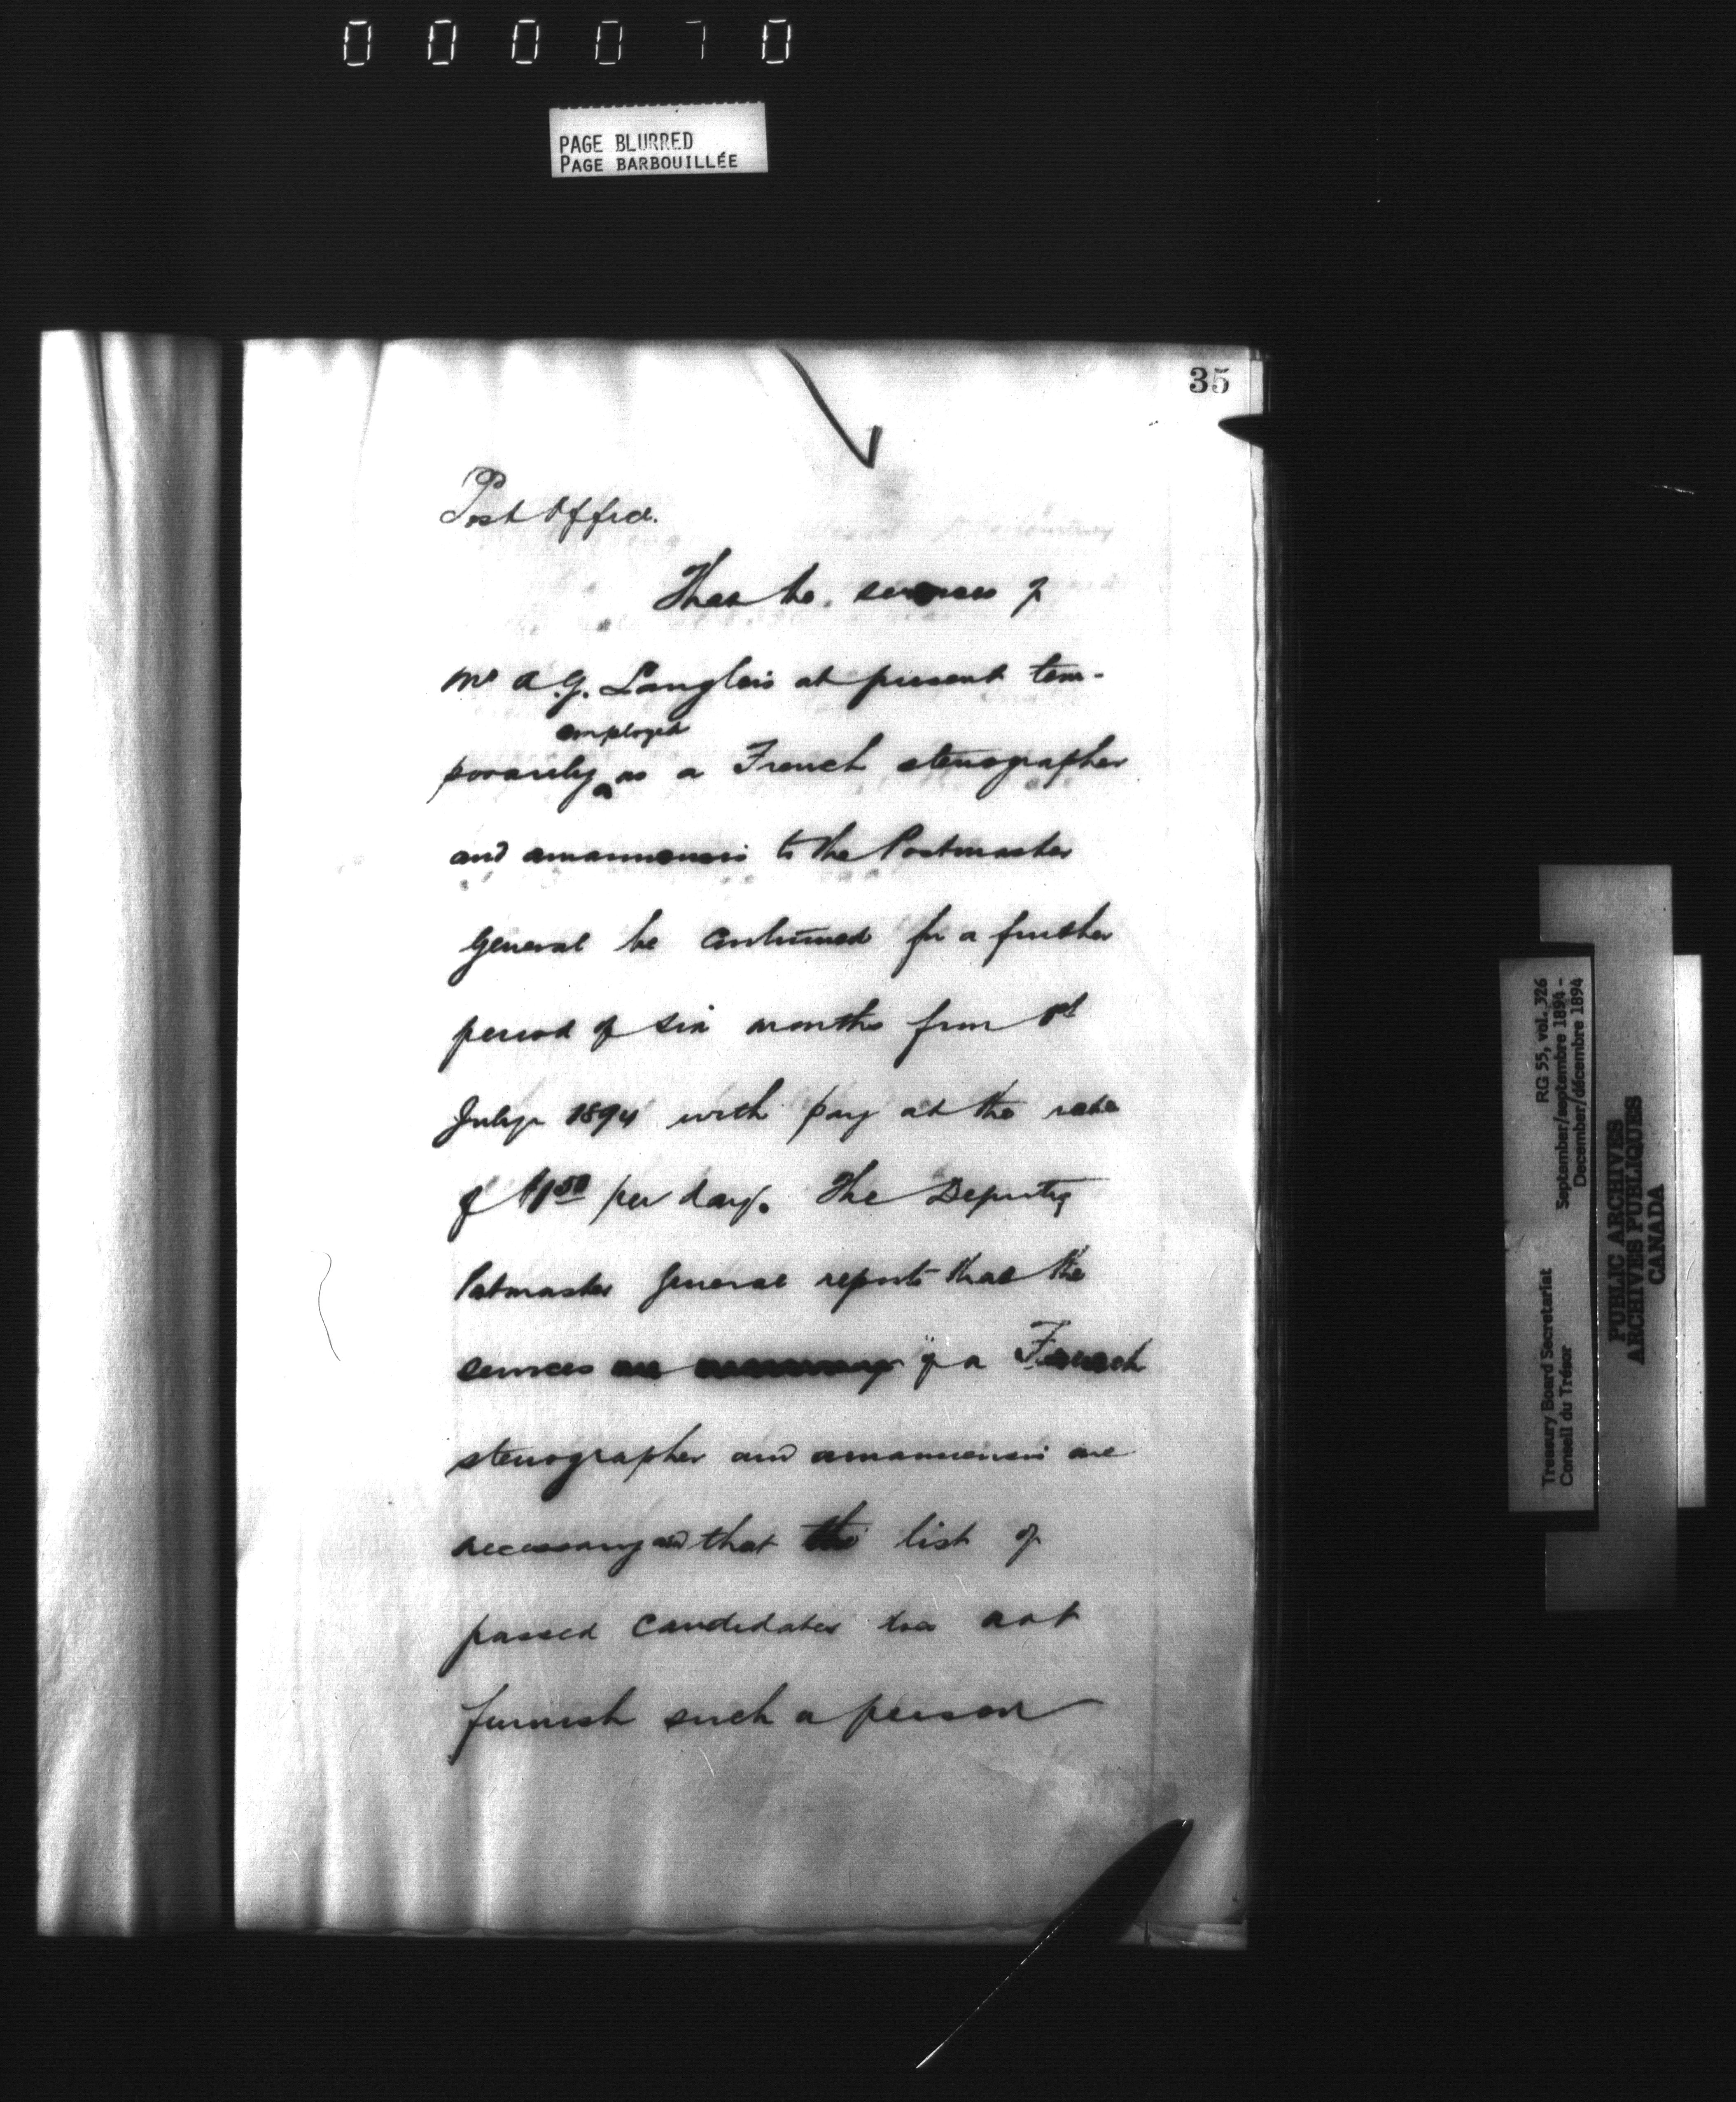 000070
PAGE BLURRED
PAGE BARBOUILLÉE
35
Post Office.
That the services of
Mr A.G. Langlois at present tem-
employed
porarily as a French stenographer
and amanuensis to the Postmaster
General be continued for a further
period of six months from 1st
July 1894 with pay at the rate
of $1 50 per day. The Deputy
Postmaster General reports that the
services are necessary of a French
stenographer and amanuensis are
necessary and that the list of
passed candidates does not
furnish such a person
Treasury Board Secretariat RG 55, vol. 326
Conseil du Trésor September/septembre 1894 -
December/décembre 1894
PUBLIC ARCHIVES
ARCHIVES PUBLIQUES
CANADA